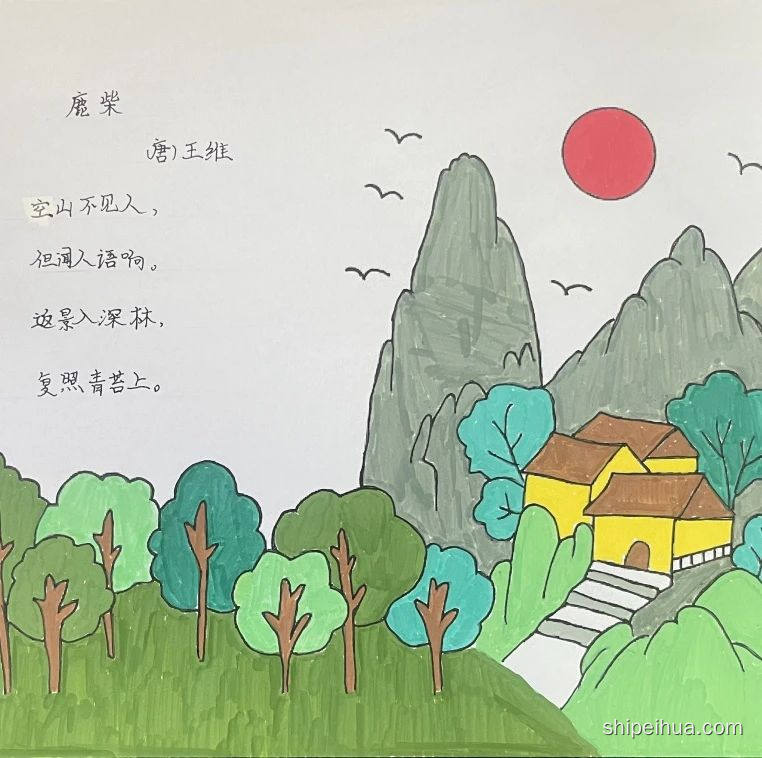 鹿柴
唐)王维
空山不见人，
但闻人语响。
返景入深林，
复照青苔上。
shipeihua.com